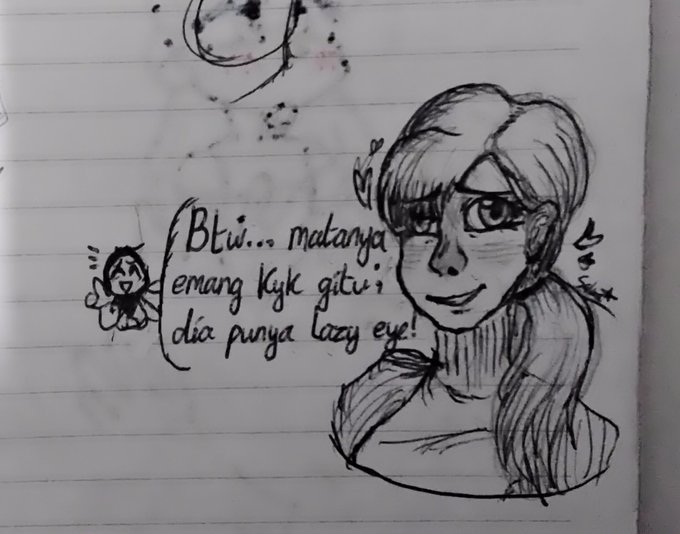 Btw... matanya
emang kyk gitu;
dia punya lazy eye!